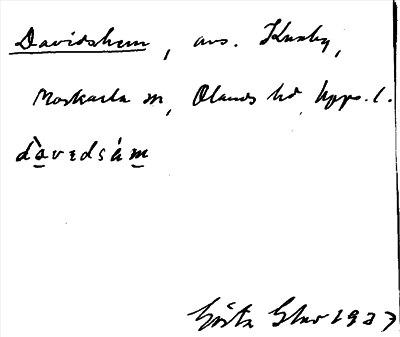 Davidshem, avs. Kusby,
Morkarla sn, Olands hd, Upps. l.
dàvedsám
Gösta 1937